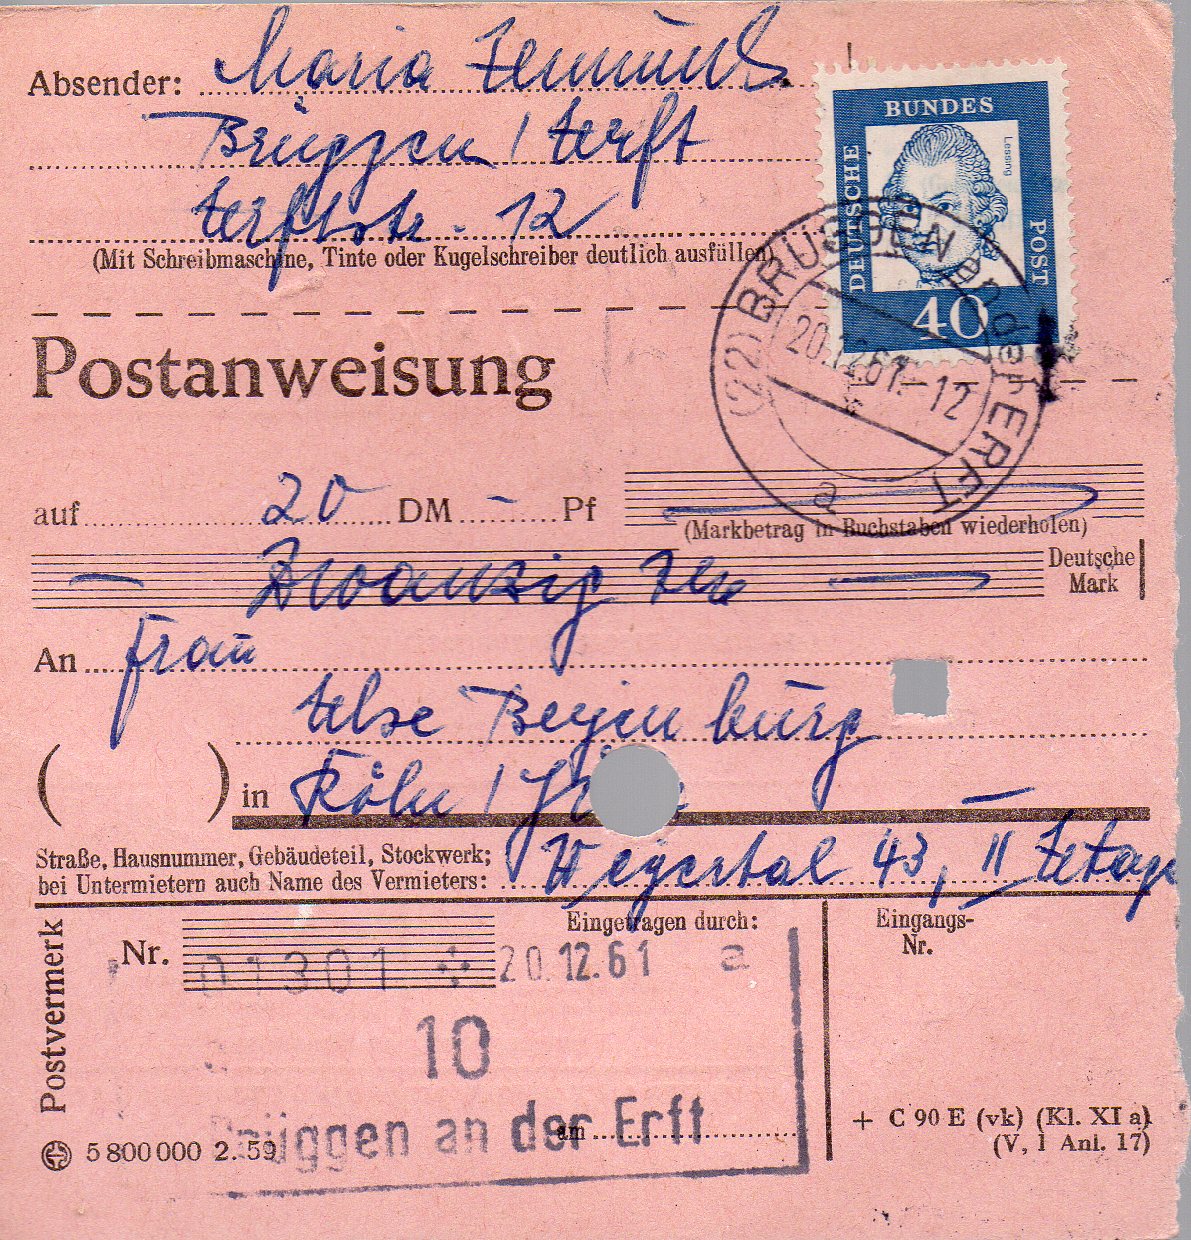 Absender: Maria
Brüggen / Erft
Erftstr. 12
(Mit Schreibmaschine, Tinte oder Kugelschreiber deutlich ausfüllen)
DEUTSCHE BUNDES POST
Lessing
40
(22) BRÜGGEN an der ERFT
20.12.61.-12
a
Postanweisung
auf 20 DM - Pf
(Markbetrag in Buchstaben wiederholen)
— Zwanzig —
Deutsche
Mark
An Frau
Else Beyenburg
( ) in Köln /
Straße, Hausnummer, Gebäudeteil, Stockwerk;
bei Untermietern auch Name des Vermieters: 43, II Etage
Postvermerk
Eingetragen durch:
Eingangs-
Nr.
Nr. 01301 20.12.61 a
10
Brüggen an der Erft
am
+ C 90 E (vk) (Kl. XI a)
(V, 1 Anl. 17)
5 800 000 2. 59